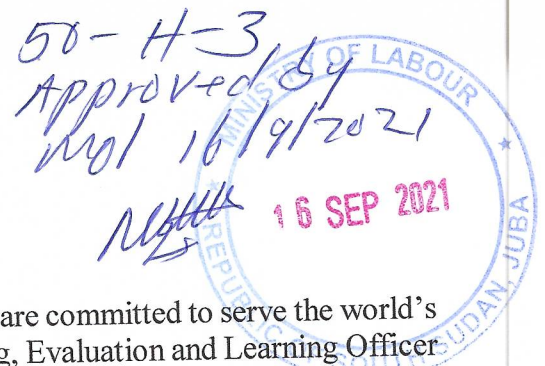 50-H-3
Approved by
Mol 16/9/2021
MINISTRY OF LABOUR
16 SEP 2021
REPUBLIC OF SOUTH SUDAN, JUBA
are committed to serve the world's
g, Evaluation and Learning Officer